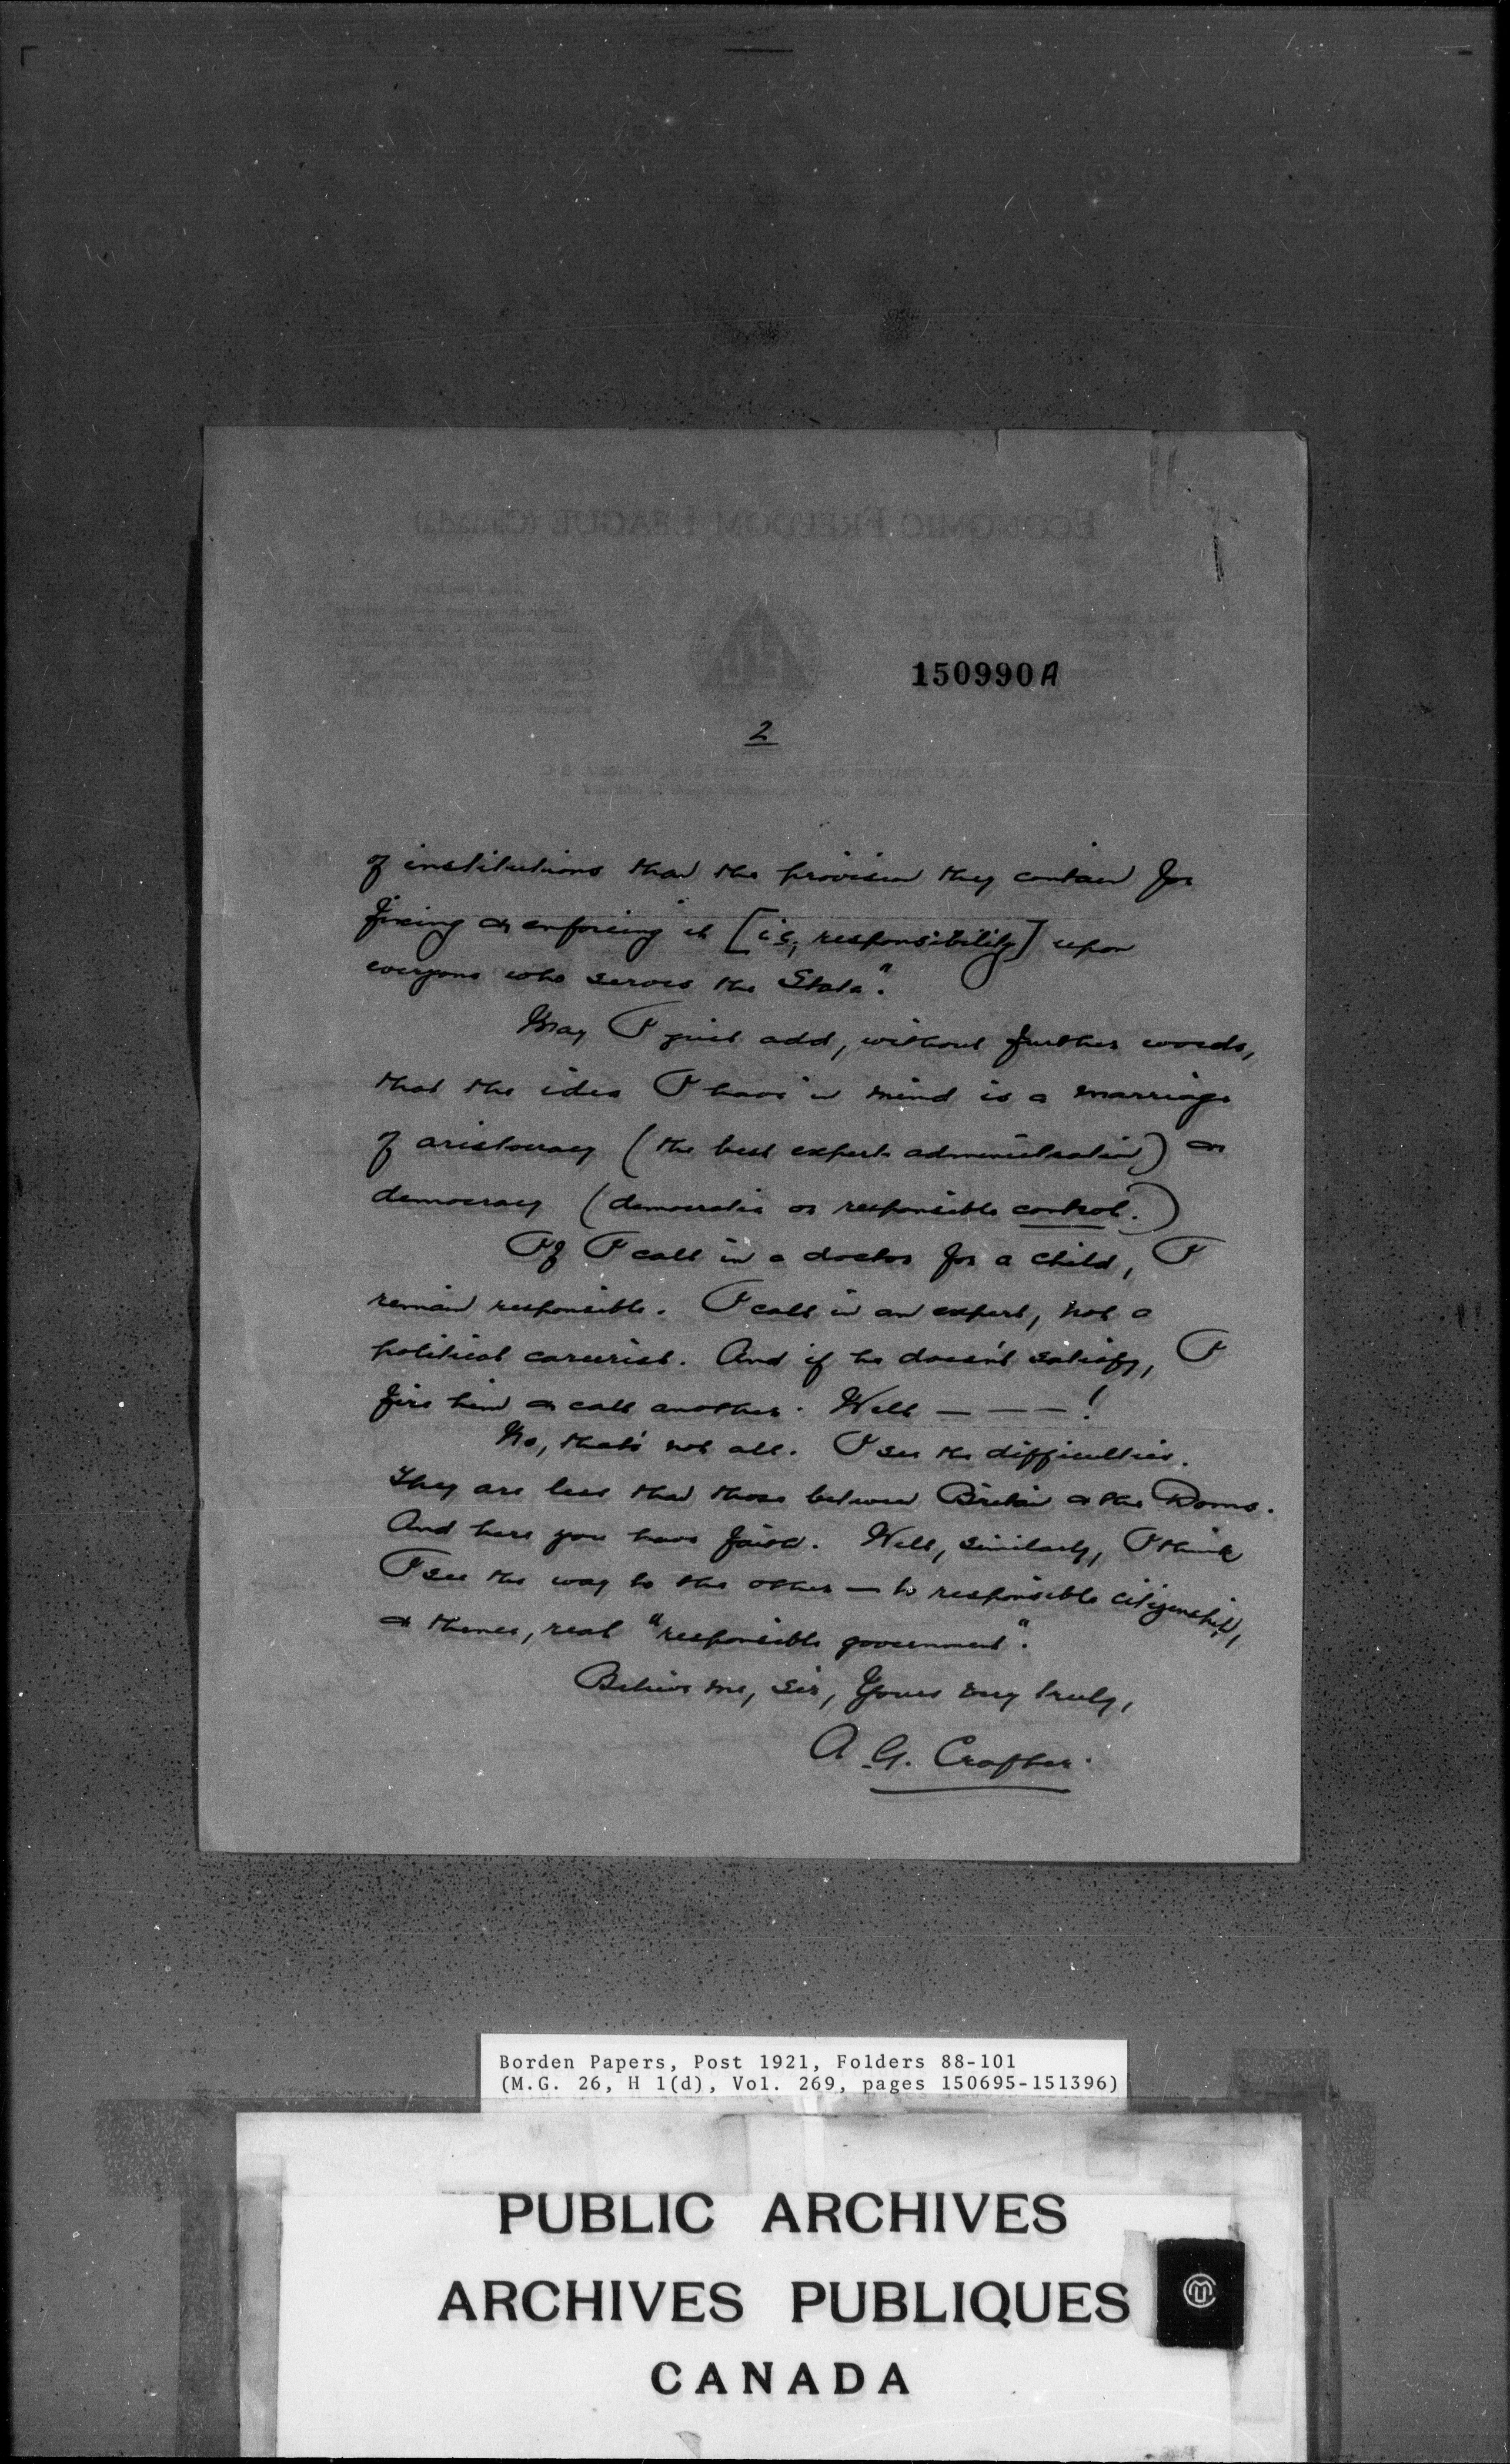 ECONOMIC FREEDOM LEAGUE (Canada)
150990A
2
of institutions than the provision they contain for
fixing & enforcing it [i.e., responsibility] upon
everyone who serves the State".
May I just add, without further words,
that the idea I have in mind is a marriage
of aristocracy (the best expert administration) &
democracy (democratic or responsible control.)
If I call in a doctor for a child, I
remain responsible. I call in an expert, not a
political careerist. And if he doesn't satisfy, I
fire him & call another. Well — — — !
No, that's not all. I see the difficulties.
They are less than those between Britain & the Doms.
And here you have faith. Well, similarly, I think
I see the way to the other — to responsible citizenship,
& thence, real "responsible government".
Believe me, Sir, Yours very truly,
A. G. Crafter.
Borden Papers, Post 1921, Folders 88-101
(M.G. 26, H 1(d), Vol. 269, pages 150695-151396)
PUBLIC ARCHIVES
ARCHIVES PUBLIQUES
CANADA